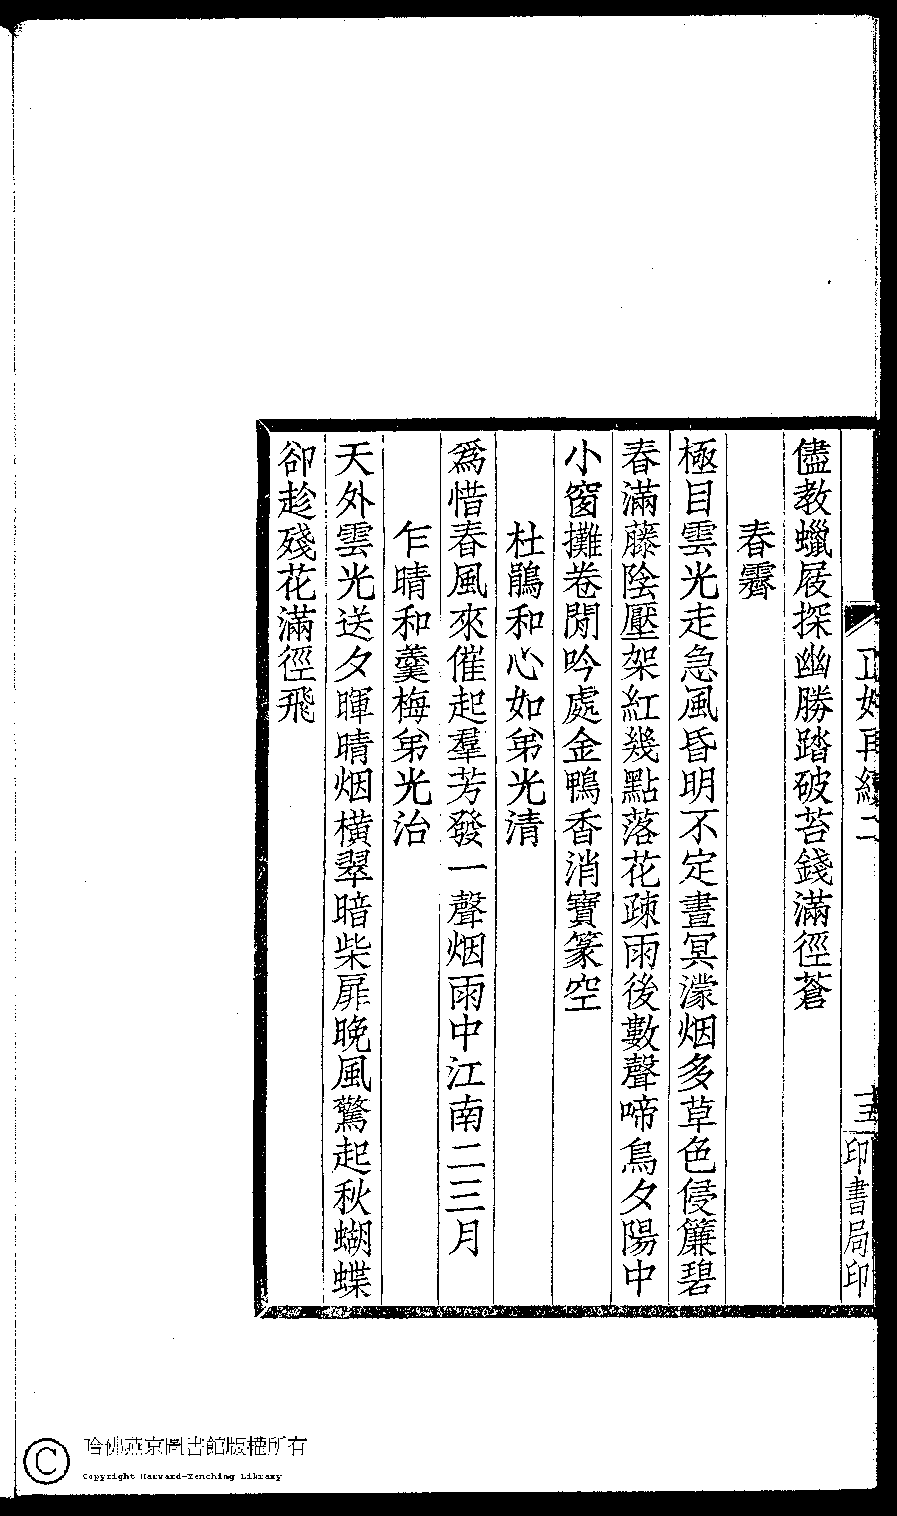 儘教蠟屐探幽勝踏破苔錢滿徑蒼
春霽
極目雲光走急風昏明不定晝冥濛烟多草色侵簾碧
春滿藤陰壓架紅幾點落花疎雨後數聲啼鳥夕陽中
小窗攤卷閒吟處金鴨香消寶篆空
杜鵑和心如弟光清
爲惜春風來催起羣芳發一聲烟雨中江南二三月
乍晴和羹梅弟光治
天外雲光送夕暉晴烟橫翠暗柴扉晚風驚起秋蝴蝶
卻趁殘花滿徑飛
再續二
十三
印書局印
哈佛燕京圖書館版權所有
Copyright Harvard-Yenching Library